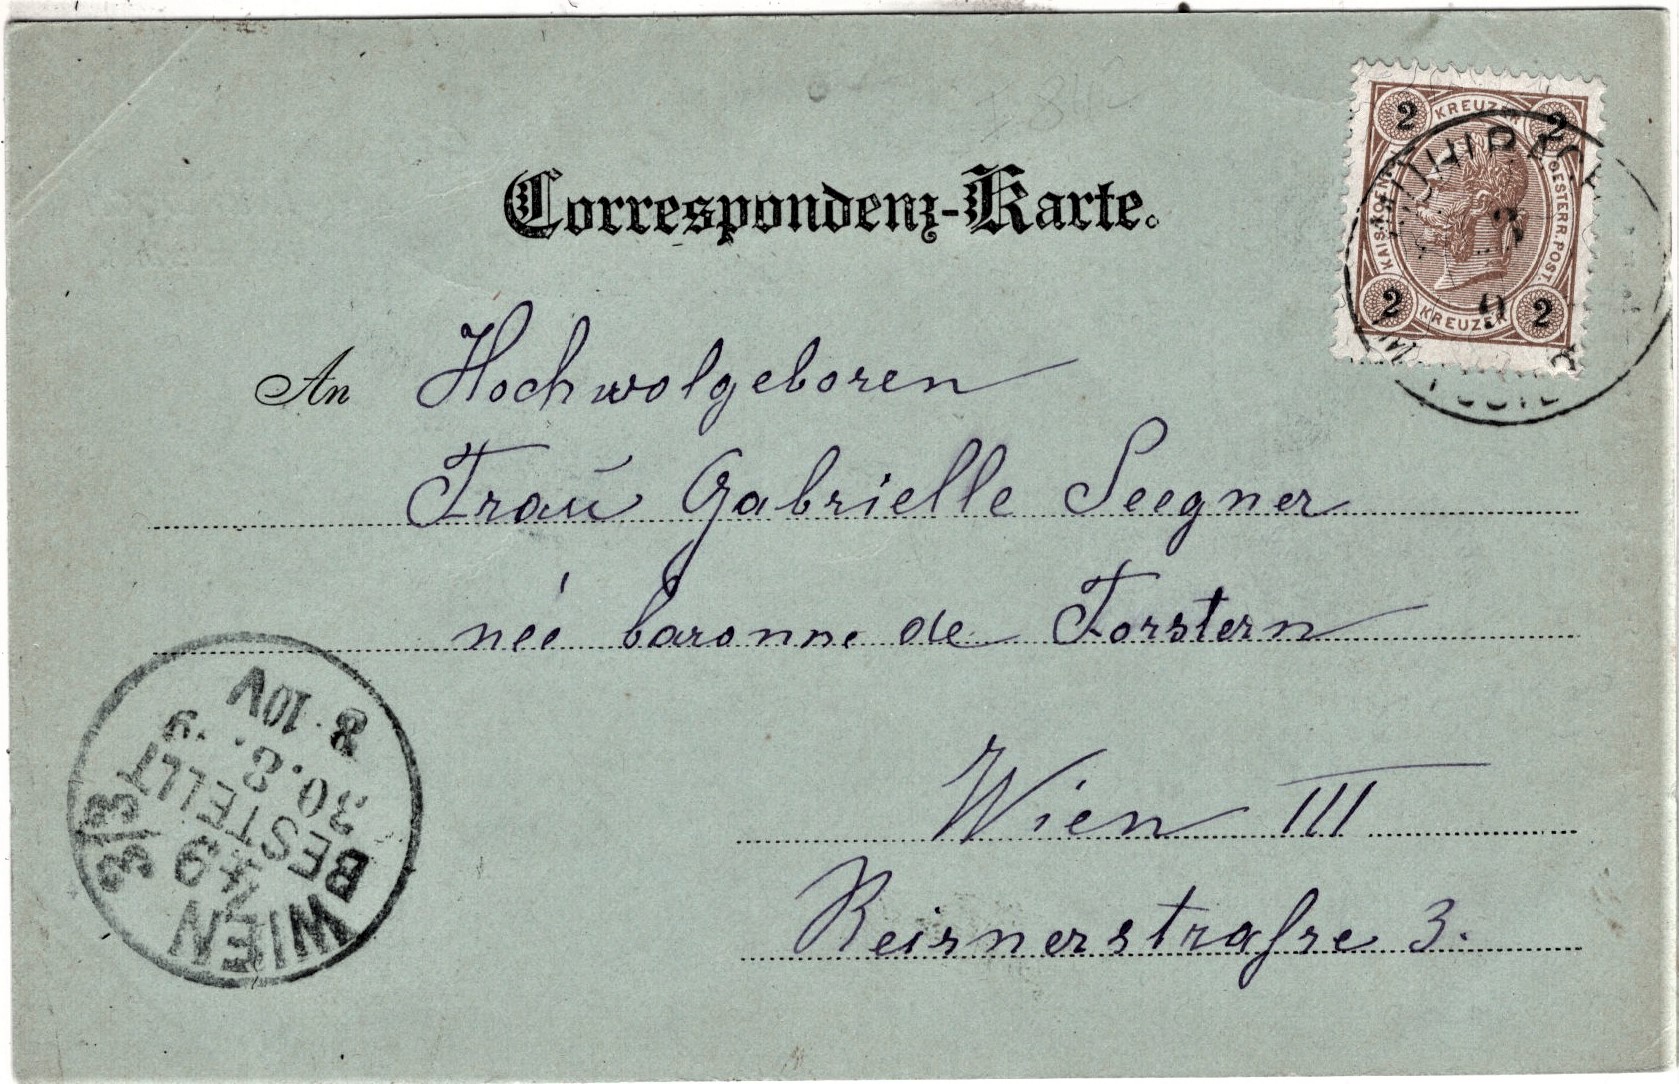 Correspondenz-Karte.
2 KREUZER 2
KAIS. KOENIGL. OESTERR. POST.
2 KREUZER 2
An Hochwolgeboren
Frau Gabrielle Seegner
neé baronne de Forstern
Wien III
Reisnerstraſse 3.
WIEN 3/3
49
BESTELLT
30.8. 9
8·10V